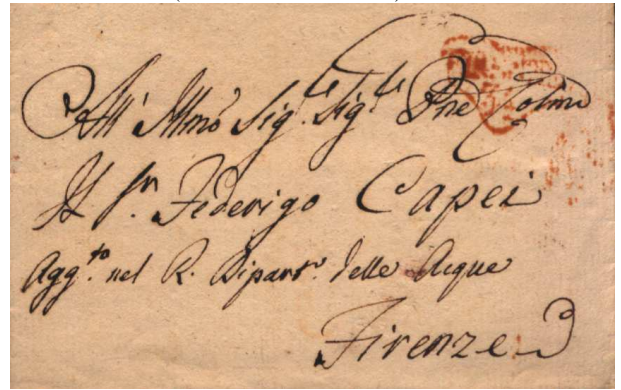 All' Illmo Sig.re Sig.re Pne Colmo
Il Sr. Federigo Capei
Agg.to nel R. Dipart.o delle Acque
Firenze